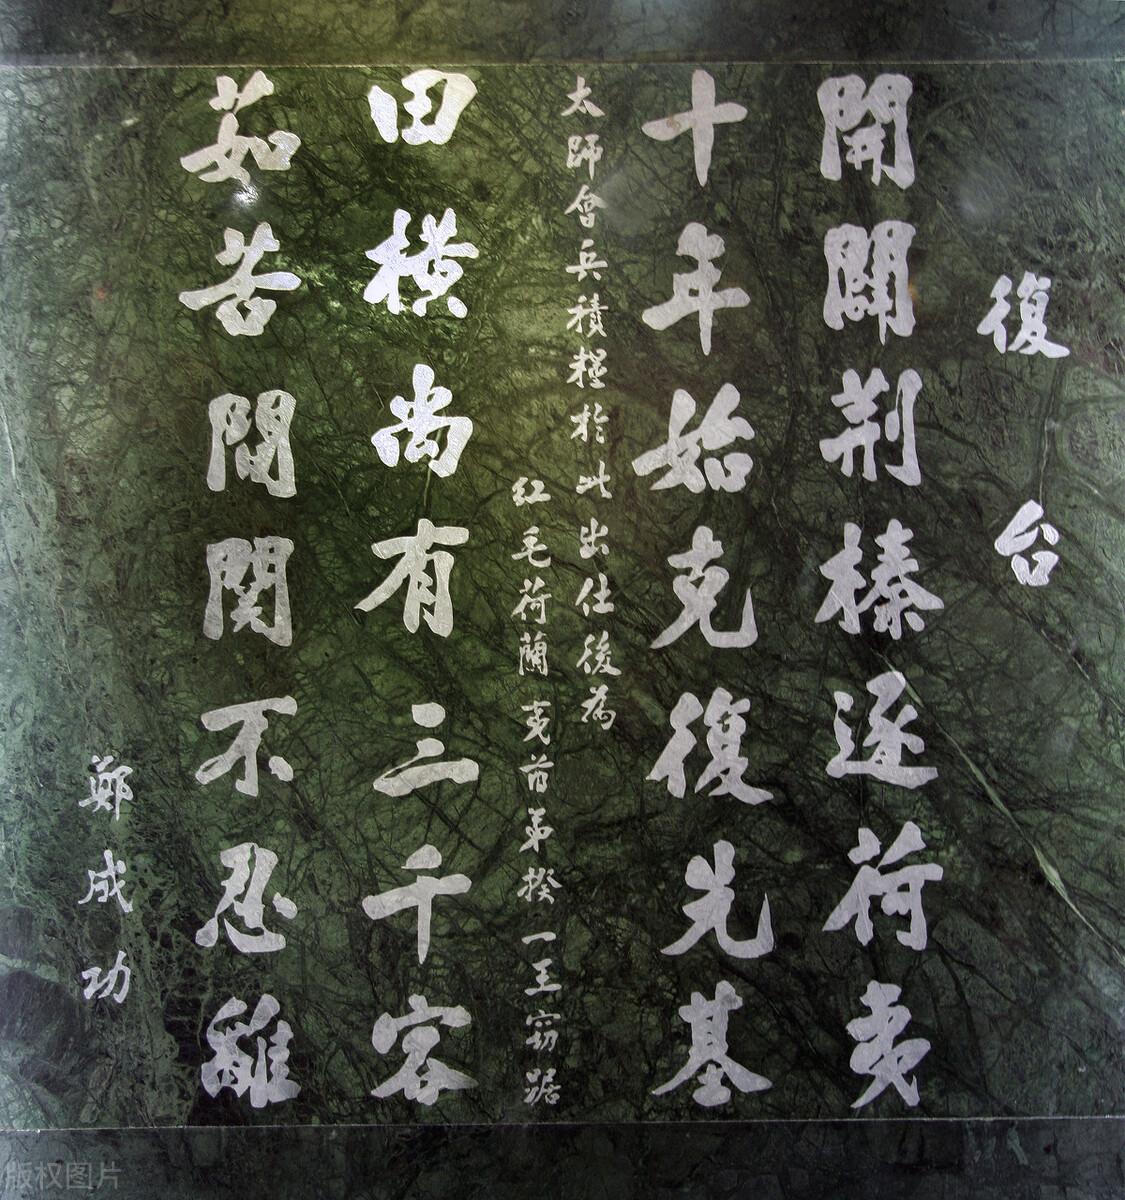 復台
開闢荆榛逐荷夷
十年始克復先基
太師會兵積糧於此出仕後為
紅毛荷蘭夷酋弟揆一王窃踞
田横尚有三千客
茹苦間関不忍離
鄭成功
版权图片